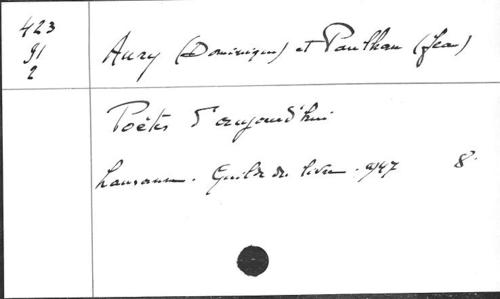 423
91
2
Aury (Dominique) et Paulhan (Jean)
Poètes d'aujourd'hui
Lausanne. Guilde du livre. 1947 8°